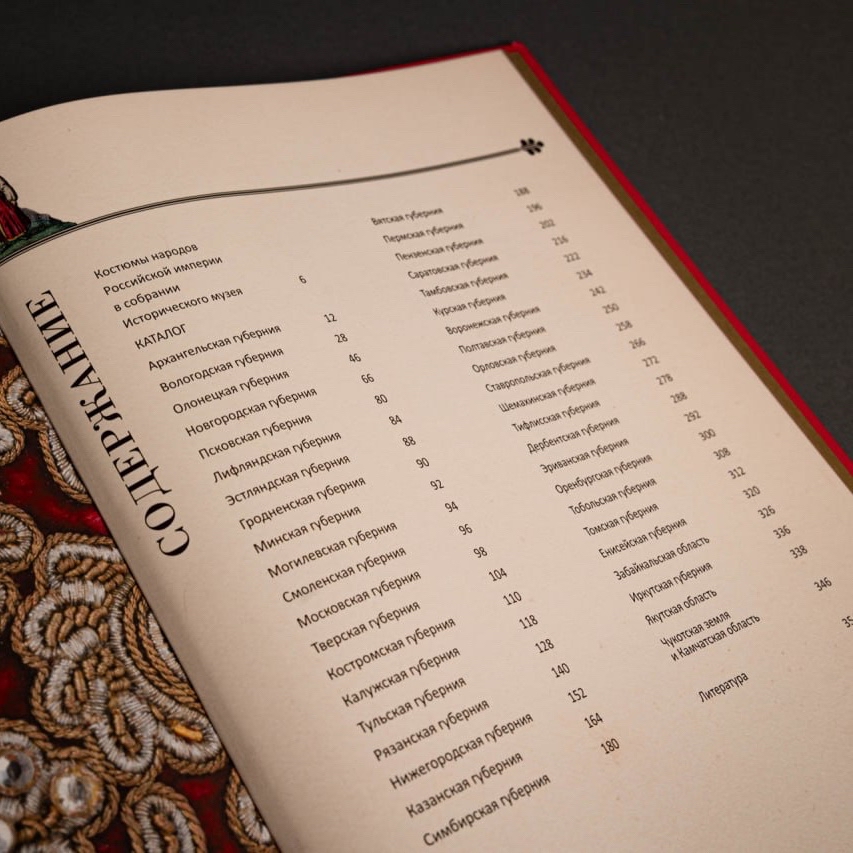 СОДЕРЖАНИЕ
Костюмы народов
Российской империи
в собрании
Исторического музея 6
КАТАЛОГ
Архангельская губерния 12
Вологодская губерния 28
Олонецкая губерния 46
Новгородская губерния 66
Псковская губерния 80
Лифляндская губерния 84
Эстляндская губерния 88
Гродненская губерния 90
Минская губерния 92
Могилевская губерния 94
Смоленская губерния 96
Московская губерния 98
Тверская губерния 104
Костромская губерния 110
Калужская губерния 118
Тульская губерния 128
Рязанская губерния 140
Нижегородская губерния 152
Казанская губерния 164
Симбирская губерния 180
Вятская губерния 188
Пермская губерния 196
Пензенская губерния 202
Саратовская губерния 216
Тамбовская губерния 222
Курская губерния 234
Воронежская губерния 242
Полтавская губерния 250
Орловская губерния 258
Ставропольская губерния 266
Шемахинская губерния 272
Тифлисская губерния 278
Дербентская губерния 288
Эриванская губерния 292
Оренбургская губерния 300
Тобольская губерния 308
Томская губерния 312
Енисейская губерния 320
Забайкальская область 326
Иркутская губерния 336
Якутская область 338
Чукотская земля
и Камчатская область 346
Литература